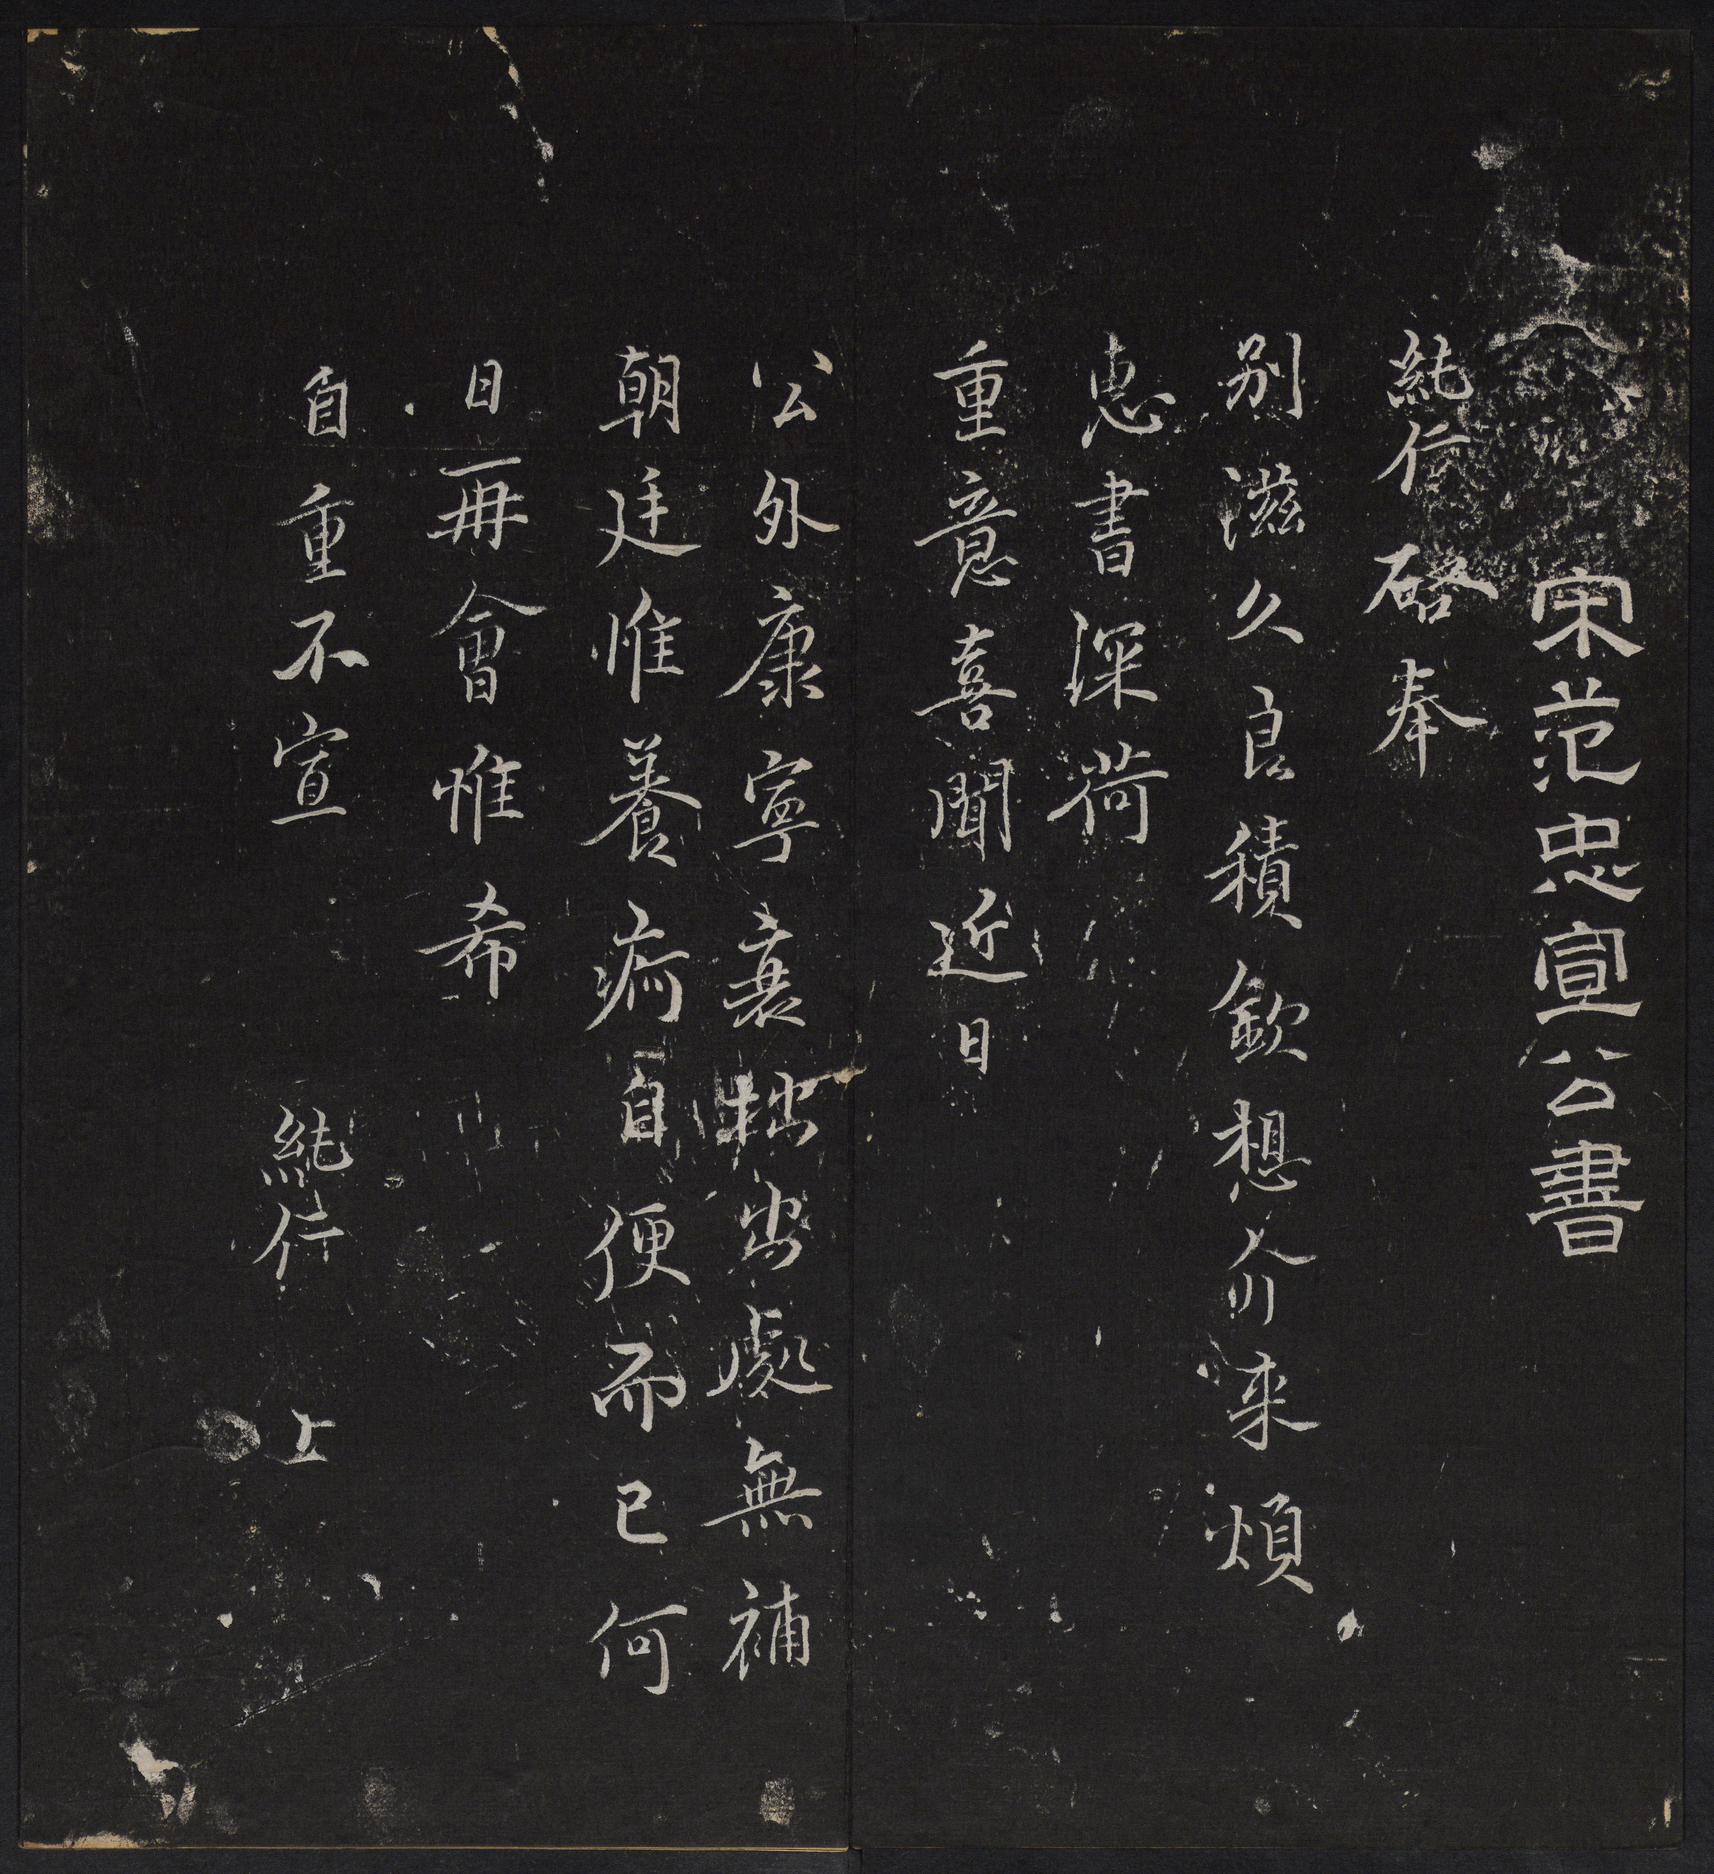 宋范忠宣公書
純仁啓奉
別滋久良積欽想介來煩
惠書深荷
重意喜聞近日
公外康寧衰拙出處無補
朝廷惟養痾自便而已何
日再會惟希
自重不宣　純仁　上